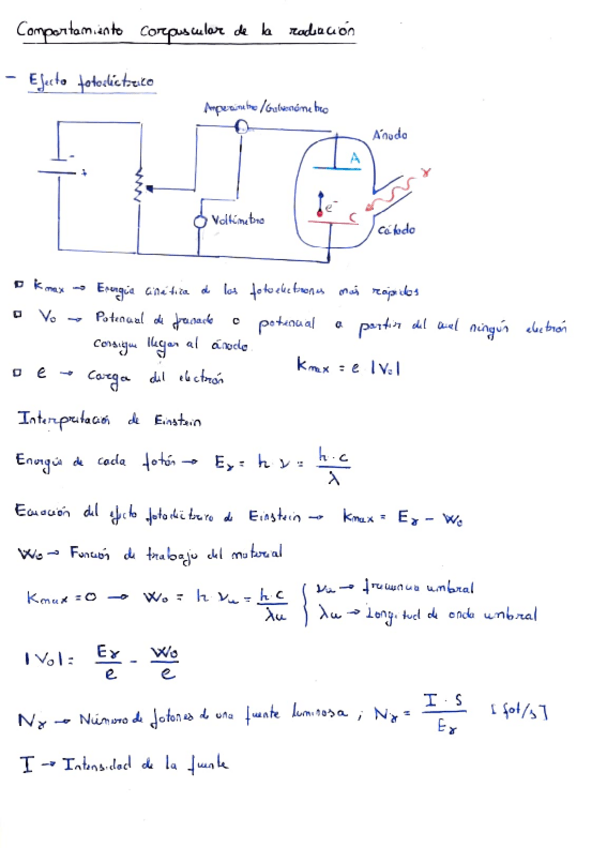 Comportamiento corpuscular de la radiación
- Efecto fotoeléctrico
Amperímetro/Galvanómetro
Ánodo
A
γ
- 
+
e⁻
C
Voltímetro
Cátodo
□ Kmax → Energía cinética de los fotoelectrones más rápidos
□ V₀ → Potencial de frenado o potencial a partir del cual ningún electrón
consigue llegar al ánodo.
Kmax = e |V₀|
□ e → Carga del electrón
Interpretación de Einstein
Energía de cada fotón → Eγ = h ν = h·c / λ
Ecuación del efecto fotoeléctrico de Einstein → Kmax = Eγ - W₀
W₀ → Función de trabajo del material
Kmax = 0 → W₀ = h νu = h·c / λu { νu → frecuencia umbral
λu → Longitud de onda umbral
|V₀| = Eγ / e - W₀ / e
Nγ → Número de fotones de una fuente luminosa ; Nγ = I · S / Eγ [fot/s]
I → Intensidad de la fuente